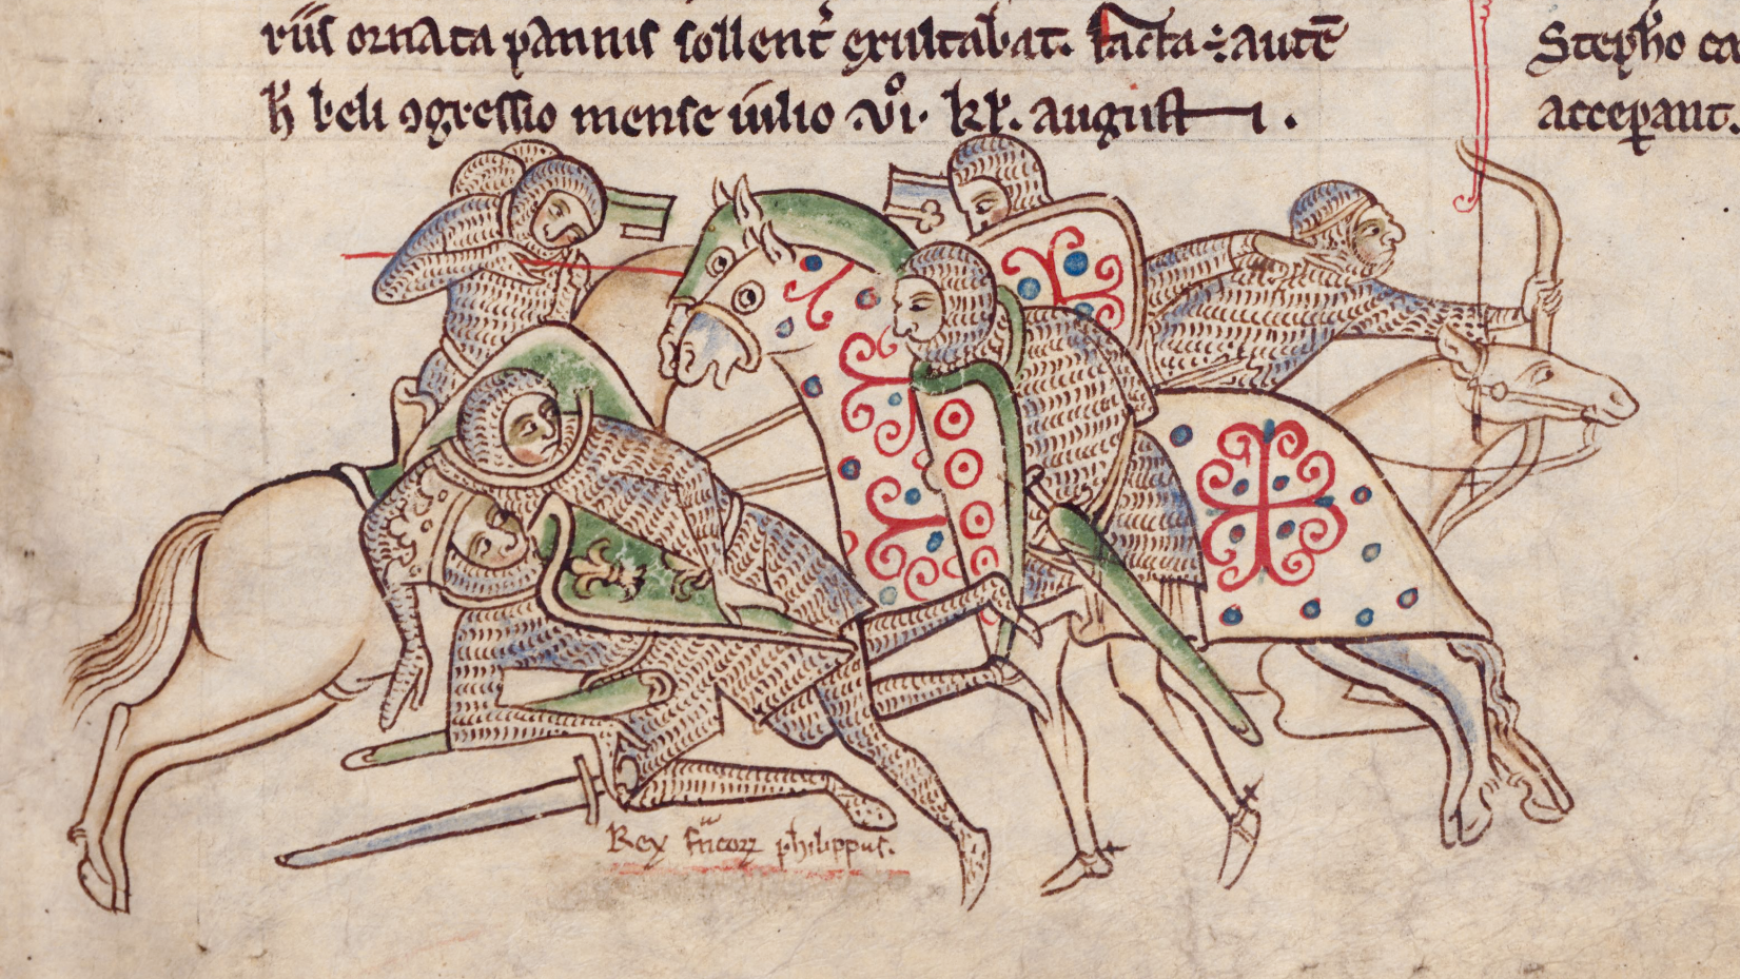 riis ornata pannis sollent̾ exultabat. Facta ÷ autē
h̄ beli ꝯgressio mense iulio .vi.º kl̄. augusti.
Stepħo ca
acceperant.
Rex fͣncoꝝ philippus.